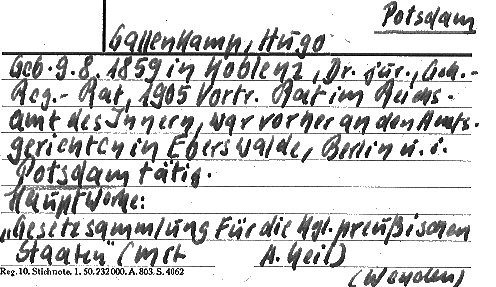 Potsdam
Gallenkamp, Hugo
Geb. 9.8.1859 in Koblenz, Dr. jur., Geh.-
Reg.- Rat, 1905 Vortr. Rat im Reichs-
amt des Innern, war vorher an den Amts-
gerichten in Eberswalde, Berlin u. i.
Potsdam tätig.
Hauptwerke:
„Gesetzsammlung für die Kgl. preußischen
Staaten" (mit A. Heil)
Reg. 10. Stichnote. 1. 50. 232000. A. 803. S. 4062
(Wenden)